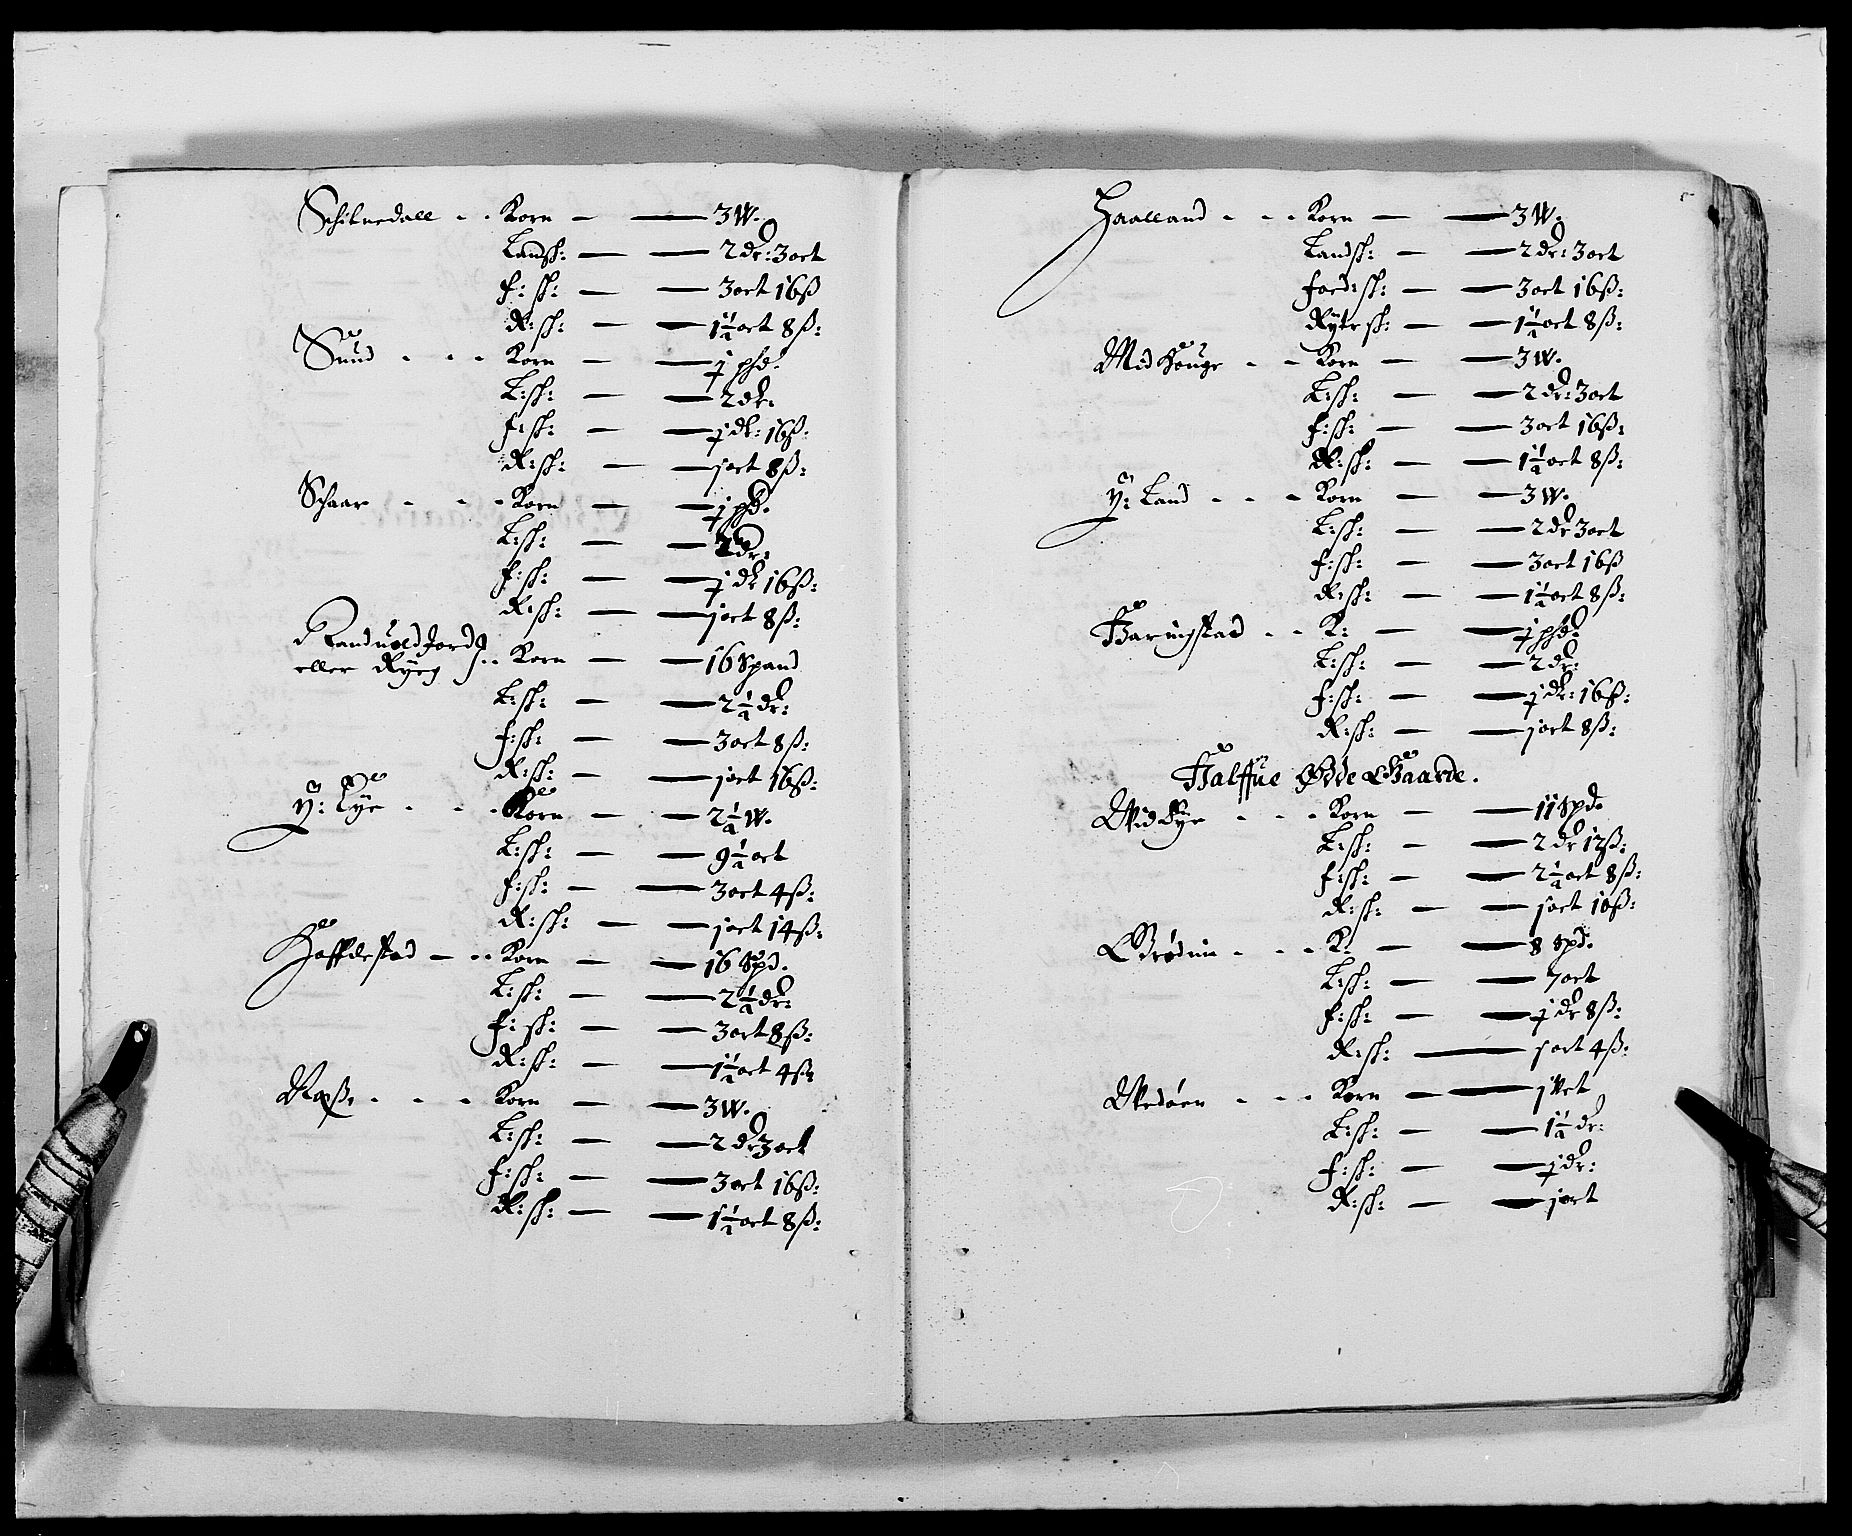 Schilnedall - - Korn — — 3 W.
Landsk: — — 2 dr: 3 ort
f: sk: — — 3 ort 16 ß
R: sk: — — 1½ ort 8 ß:
Suud - - - Korn — — j phd:
L: sk: — — 2 dr:
f: sk: — — j dr: 16 ß:
R: sk: — — j ort 8 ß:
Schaar - - - Korn — — j phd.
L: sk: — — 2 dr:
f: sk: — — j dr 16 ß:
R: sk: — — j ort 8 ß:
Randuold Jord
eller Rÿeg - - Korn — — 16 Spand
L: sk: — — 2½ dr:
f: sk: — — 3 ort 8 ß:
R: sk: — — j ort 16 ß:
ÿ: Lÿe - - - Korn — — 2½ W.
L: sk: — — 9½ ort
f: sk: — — 3 ort 4 ß:
R: sk: — — j ort 14 ß:
Hoffdestad — - - Korn — — 16 Spd.
L: sk: — — 2½ dr:
f: sk: — — 3 ort 8 ß:
R: sk: — — 1½ ort 4 ß:
Korn — — 3 W.
L: sk: — — 2 dr 3 ort
f: sk: — — 3 ort 16 ß:
R: sk: — — 1½ ort 8 ß:
Haalland - - - Korn — — 3 W.
Landsk: — — 2 dr: 3 ort
foed: sk: — — 3 ort 16 ß:
Rÿtr sk: — — 1½ ort 8 ß:
Mid Houge - - Korn — — 3 W.
L: sk: — — 2 dr: 3 ort
f: sk: — — 3 ort 16 ß:
R: sk: — — 1½ ort 8 ß:
ÿ: Land - - - Korn — — 3 W.
L: sk: — — 2 dr 3 ort
f: sk: — — 3 ort 16 ß
R: sk: — — 1½ ort 8 ß:
Haringstad - - K: — — j phd:
L: sk: — — 2 dr:
f: sk: — — j dr: 16 ß:
R: sk: — — j ort 8 ß:
Halffue Øde Gaarde.
Mid Lÿe - - - Korn — — 11 Spd.
L: sk: — — 2 dr 12 ß:
f: sk: — — 2½ ort 8 ß:
R: sk: — — j ort 10 ß:
Grødim - - - K: — — 8 Spd.
L: sk: — — 7 ort
f: sk: — — j dr 8 ß:
R: sk: — j ort 4 ß:
Wedøen - - - Korn — — j Vet
L: sk: — — 1½ dr:
f: sk: — — j dr:
R: sk: — — j ort